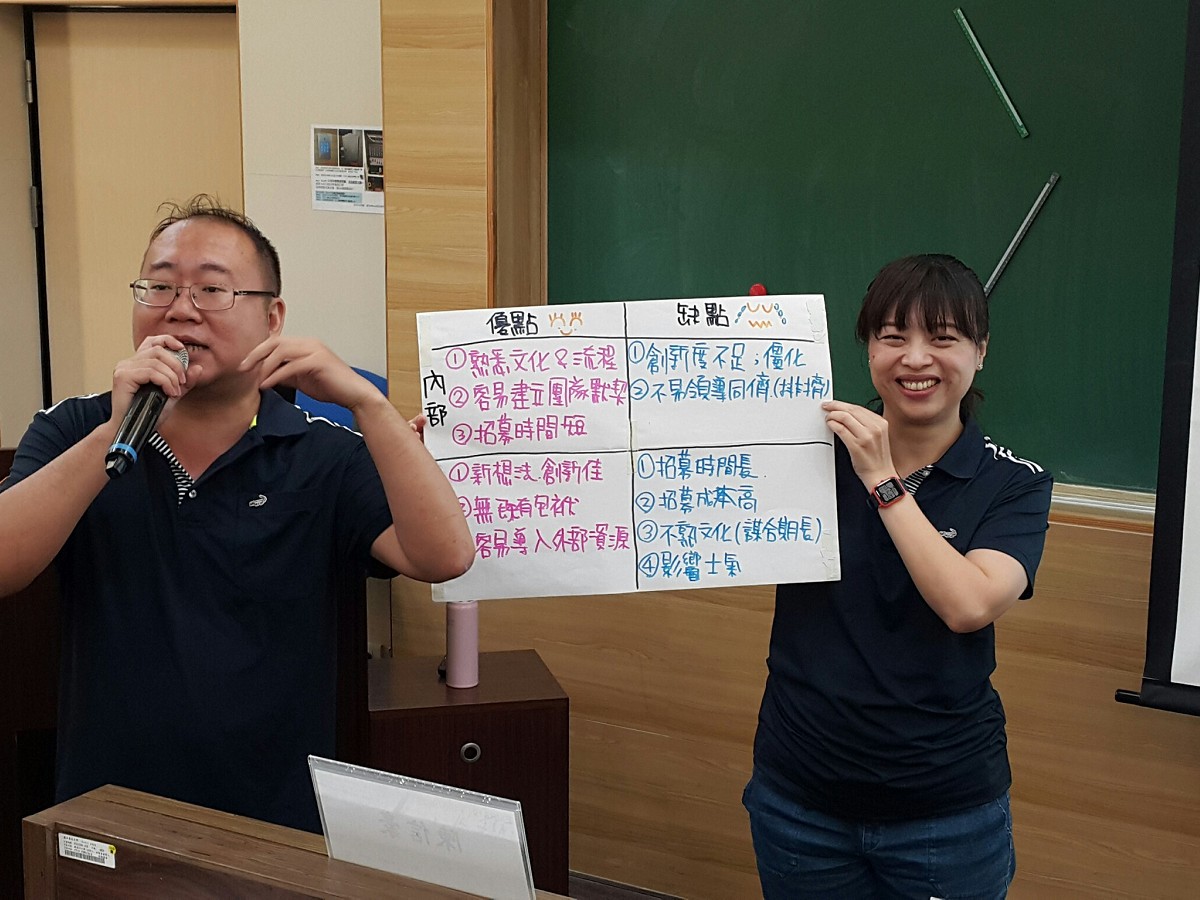 優點 缺點
內部
①熟悉文化&流程
②容易建立團隊默契
③招募時間短
①創新度不足;僵化
②不易領導同儕(排擠)
①新想法.創新佳
②無既有包袱
容易導入外部資源
①招募時間長.
②招募成本高
③不熟文化(謀合期長)
④影響士氣